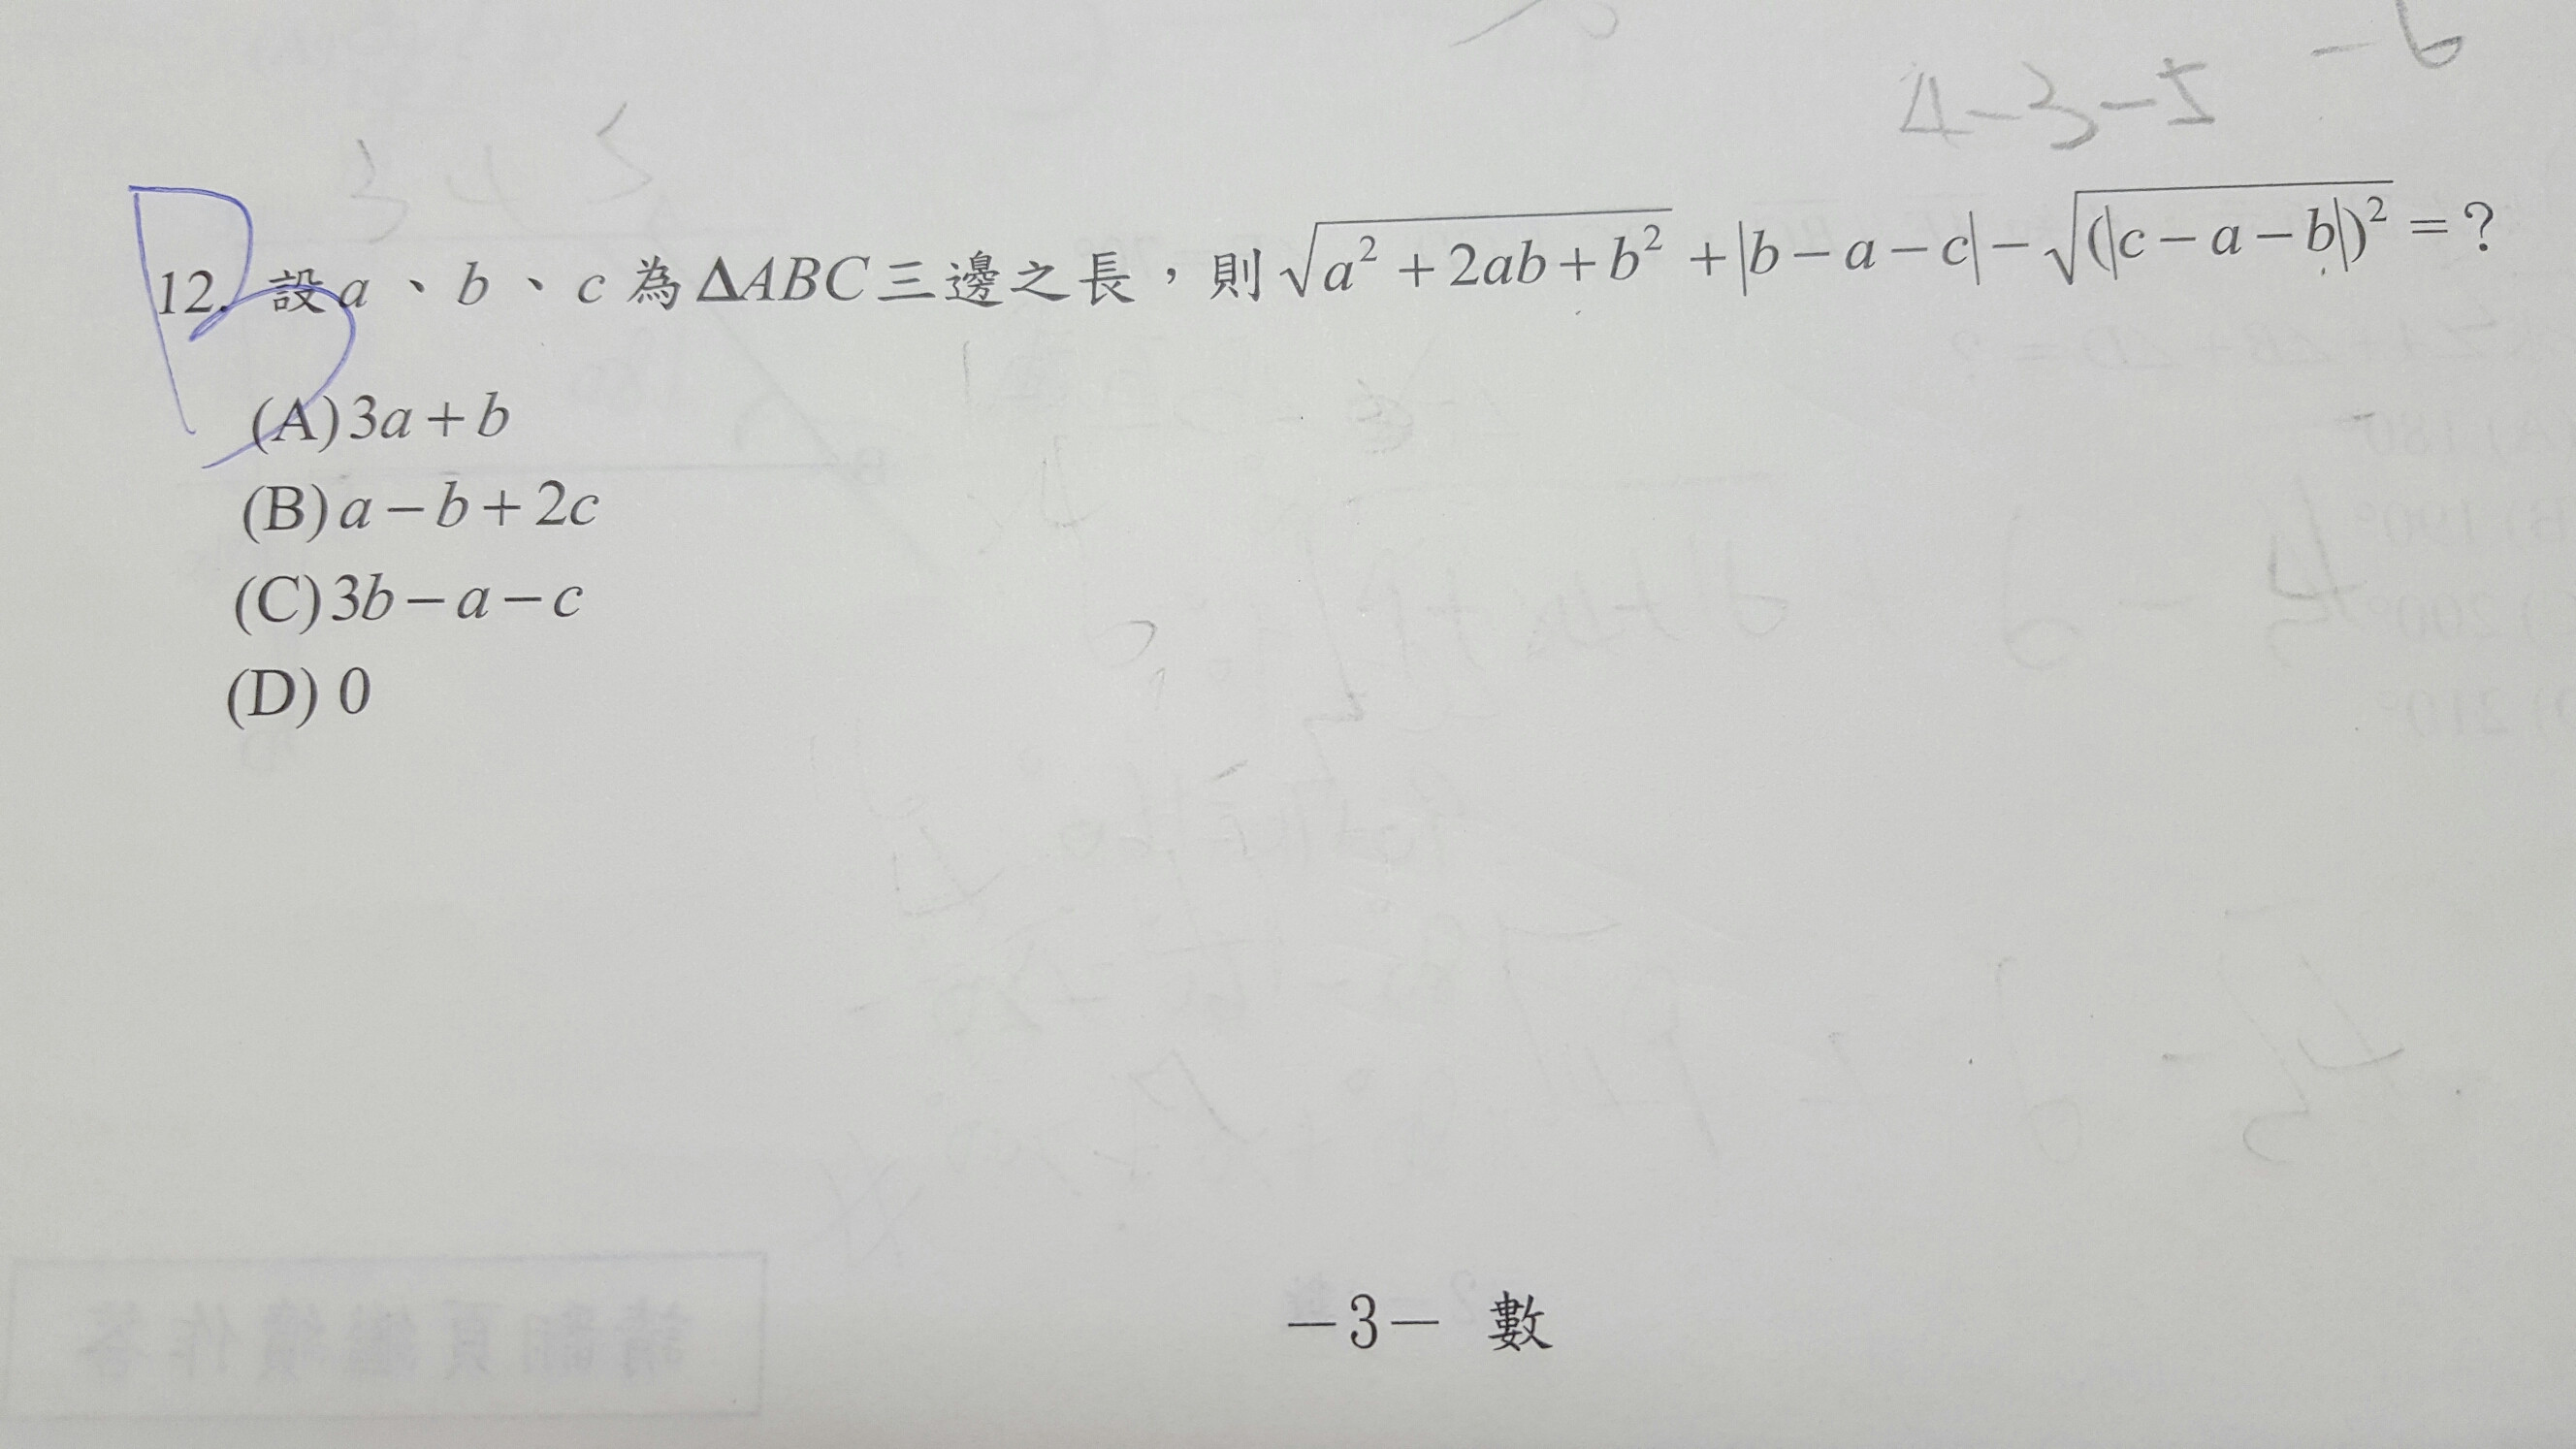 -6
4-3-5
3 4 5
B
12. 設 a 、 b 、 c 為 ΔABC 三邊之長，則 √(a² + 2ab + b²) + |b − a − c| − √((|c − a − b|)²) = ?
(A) 3a + b
(B) a − b + 2c
(C) 3b − a − c
(D) 0
−3− 數